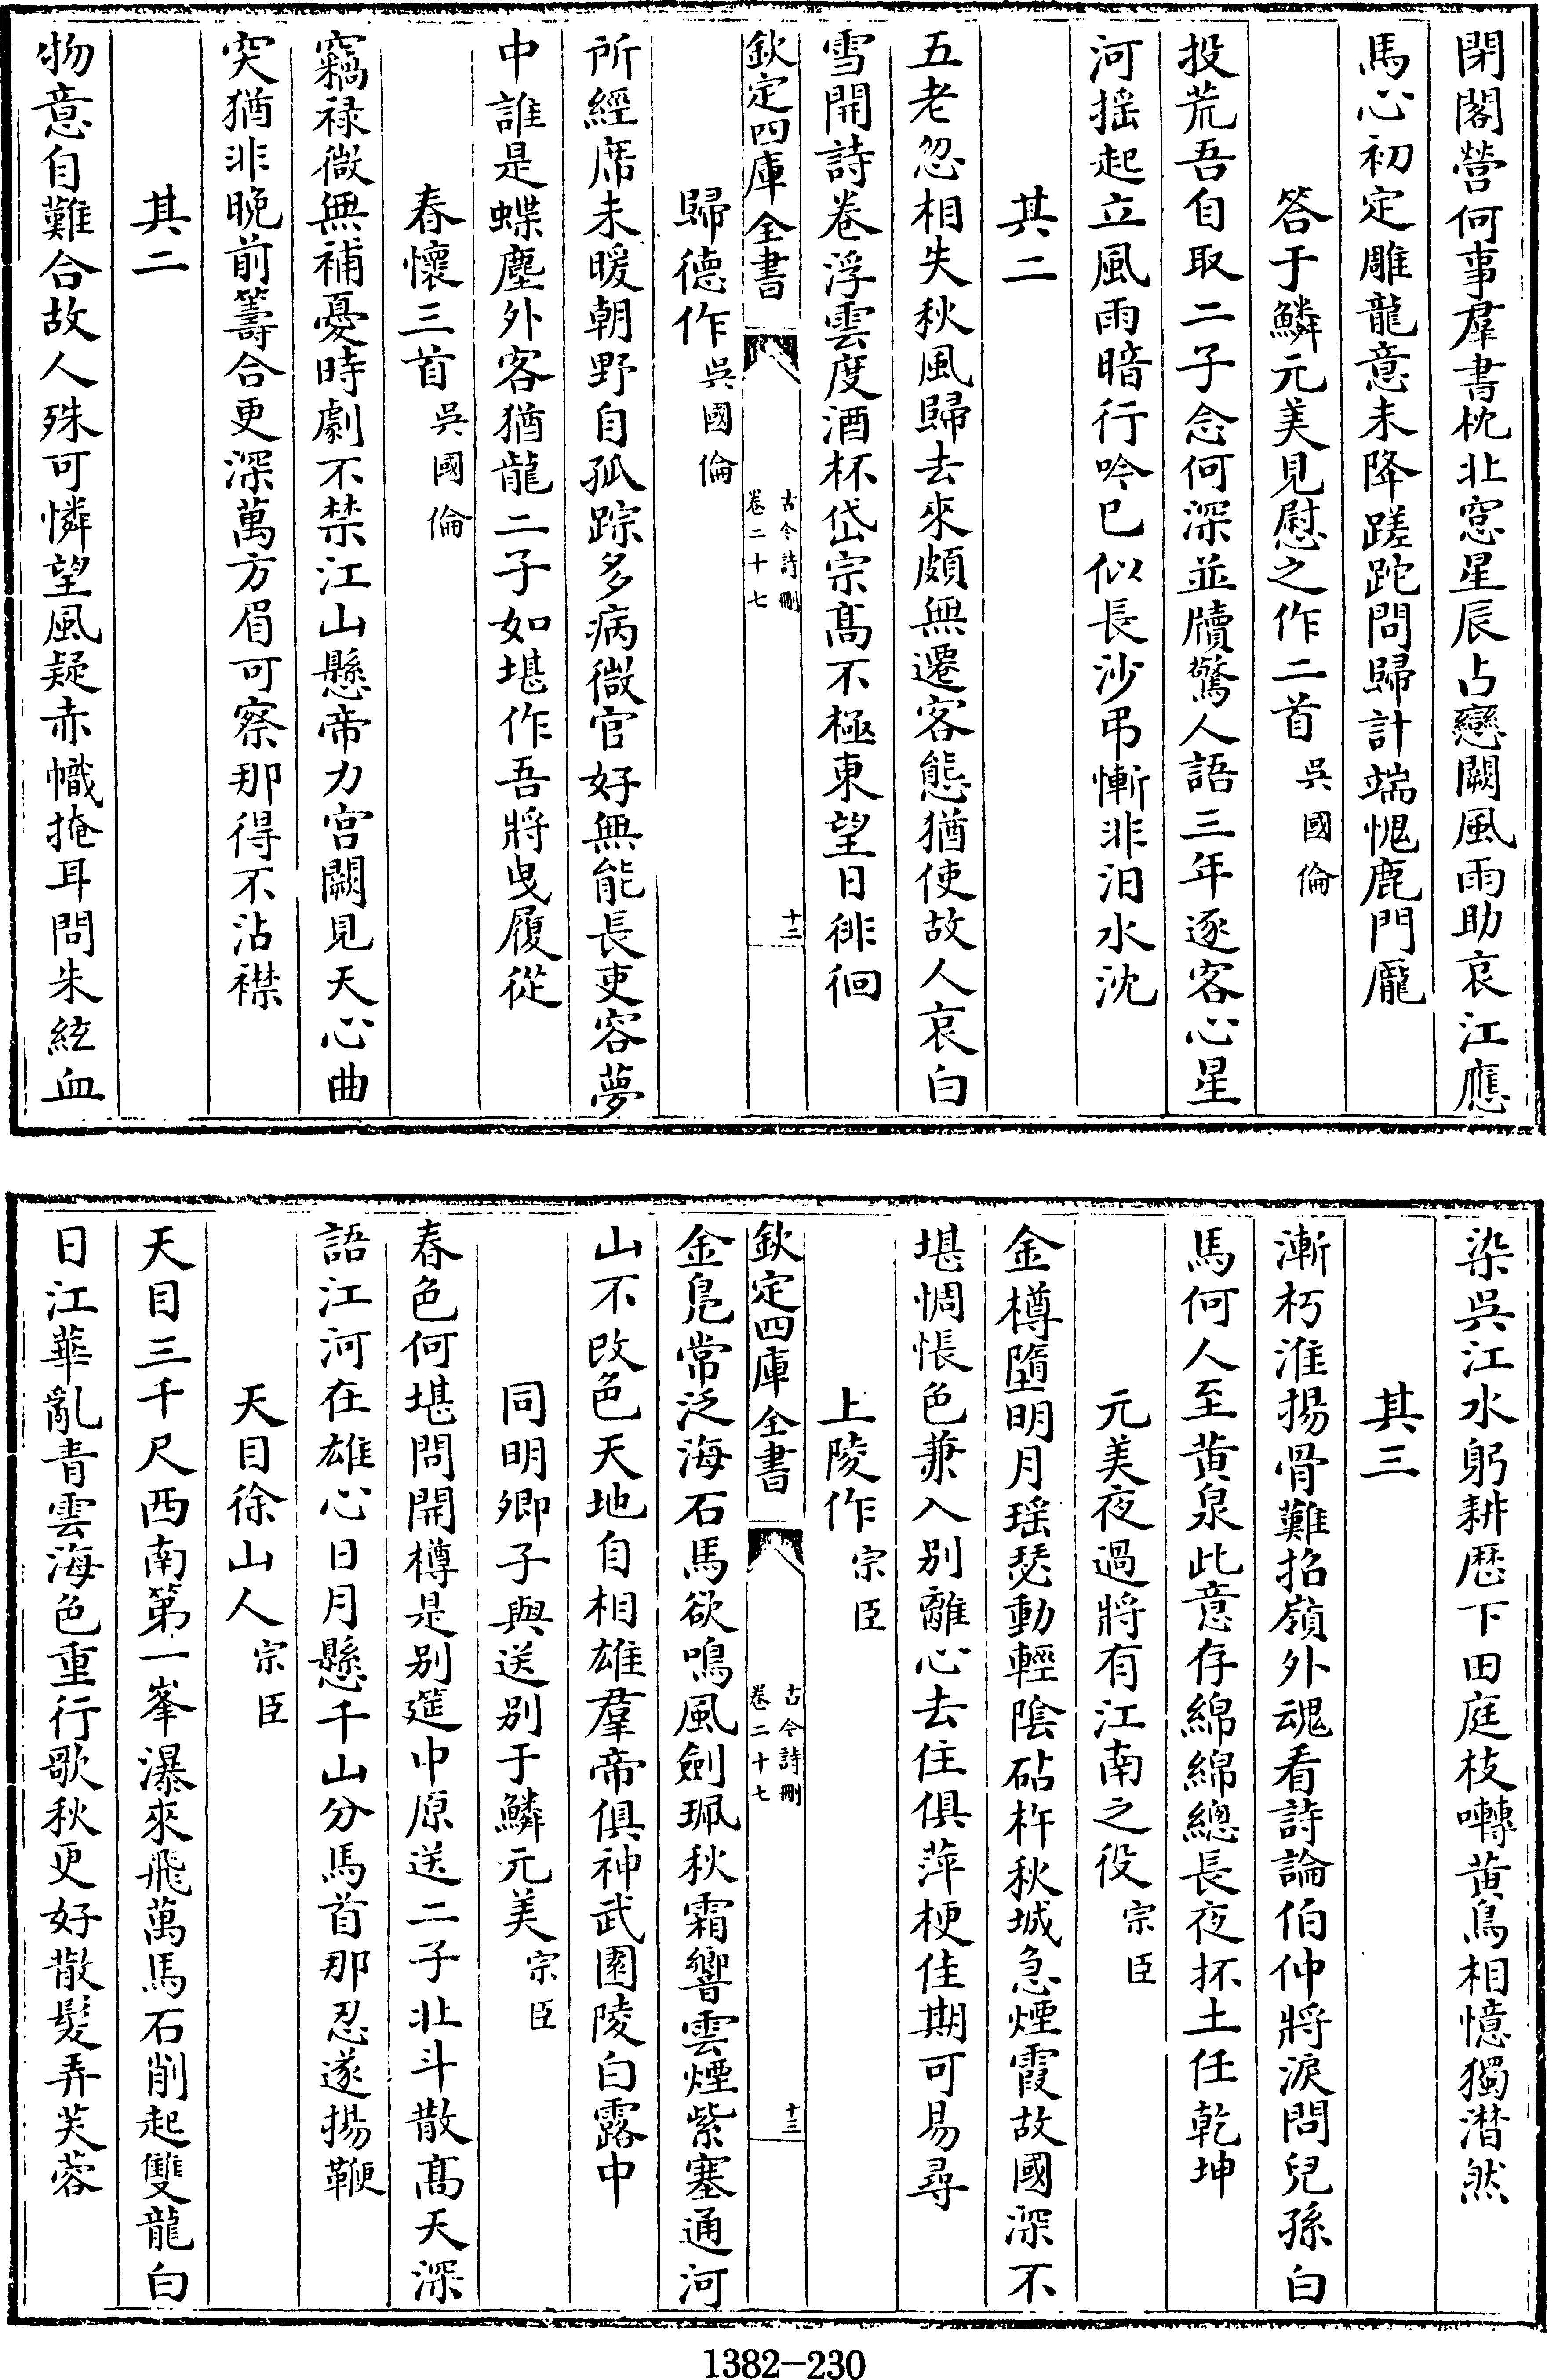 閉閣營何事羣書枕北窓星辰占戀闕風雨助哀江應
馬心初定雕龍意未降蹉跎問歸計端愧鹿門龎
答于鱗元美見慰之作二首 吳國倫
投荒吾自取二子念何深並牘驚人語三年逐客心星
河揺起立風雨暗行吟已似長沙弔慚非汨水沈
其二
五老忽相失秋風歸去來頗無遷客態猶使故人哀白
雪開詩卷浮雲度酒杯岱宗髙不極東望日徘徊
欽定四庫全書 古今詩刪 卷二十七 十二
歸德作 吳國倫
所經席未暖朝野自孤踪多病微官好無能長吏容夢
中誰是蝶塵外客猶龍二子如堪作吾將曳履從
春懷三首 吳國倫
竊禄微無補憂時劇不禁江山懸帝力宫闕見天心曲
突猶非晚前籌合更深萬方眉可察那得不沾襟
其二
物意自難合故人殊可憐望風疑赤幟掩耳問朱絃血
染吳江水躬耕歴下田庭枝囀黄鳥相憶獨潸然
其三
漸朽淮揚骨難招嶺外魂看詩論伯仲將淚問兒孫白
馬何人至黄泉此意存綿綿總長夜抔土任乾坤
元美夜過將有江南之役 宗臣
金樽墮明月瑶瑟動輕陰砧杵秋城急煙霞故國深不
堪惆悵色兼入别離心去住俱萍梗佳期可易尋
上陵作 宗臣
欽定四庫全書 古今詩刪 卷二十七 十三
金鳬常泛海石馬欲鳴風劍珮秋霜響雲煙紫塞通河
山不改色天地自相雄羣帝俱神武園陵白露中
同明卿子與送别于鱗元美 宗臣
春色何堪問開樽是别筵中原送二子北斗散髙天深
語江河在雄心日月懸千山分馬首那忍遂揚鞭
天目徐山人 宗臣
天目三千尺西南第一峯瀑來飛萬馬石削起雙龍白
日江華亂青雲海色重行歌秋更好散髮弄芙蓉
1382-230